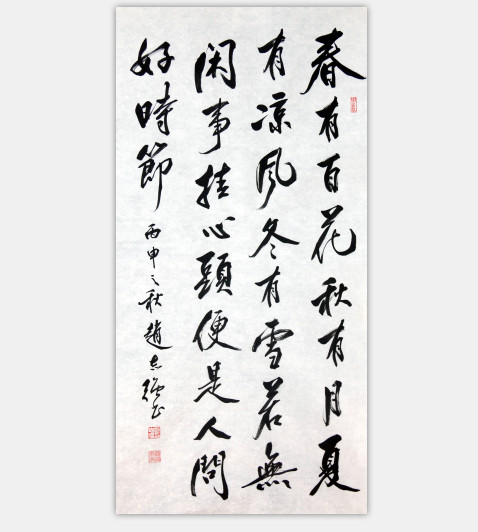 春有百花秋有月夏
有凉风冬有雪若無
闲事挂心頭便是人間
好時節
丙申之秋趙志強书